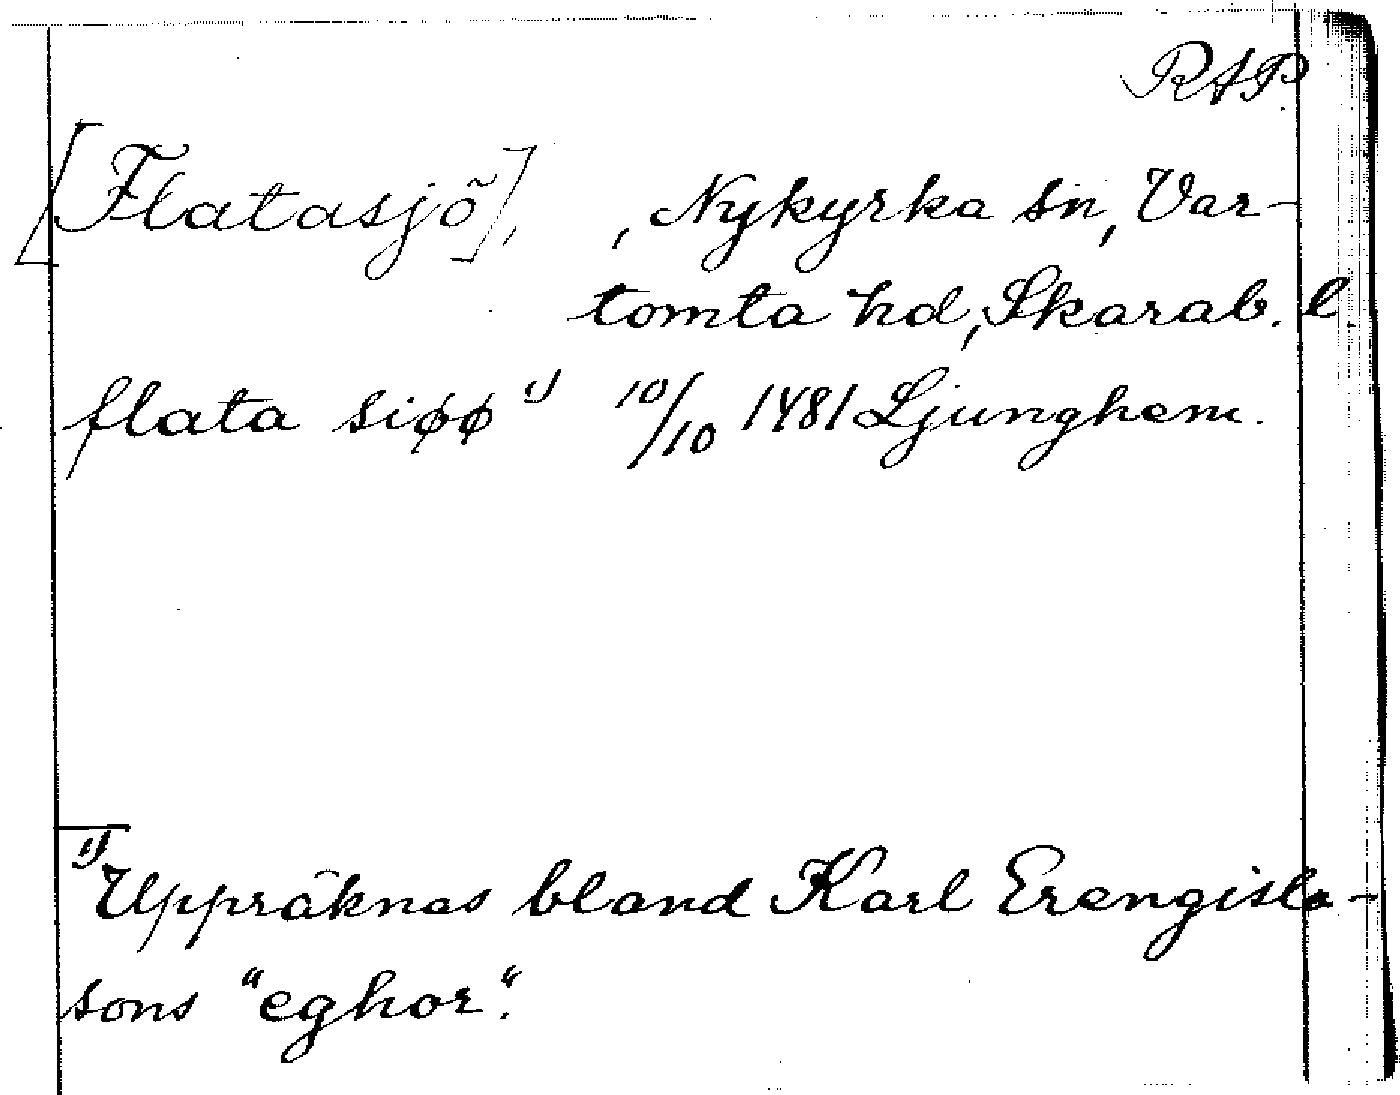 RAP.
[Flatasjö], , Nykyrka sn, Var-
tomta hd, Skarab. l.
flata siøø 1) 10/10 1481 Ljunghem.
1) Uppräknas bland Karl Erengisla-
sons "eghor".